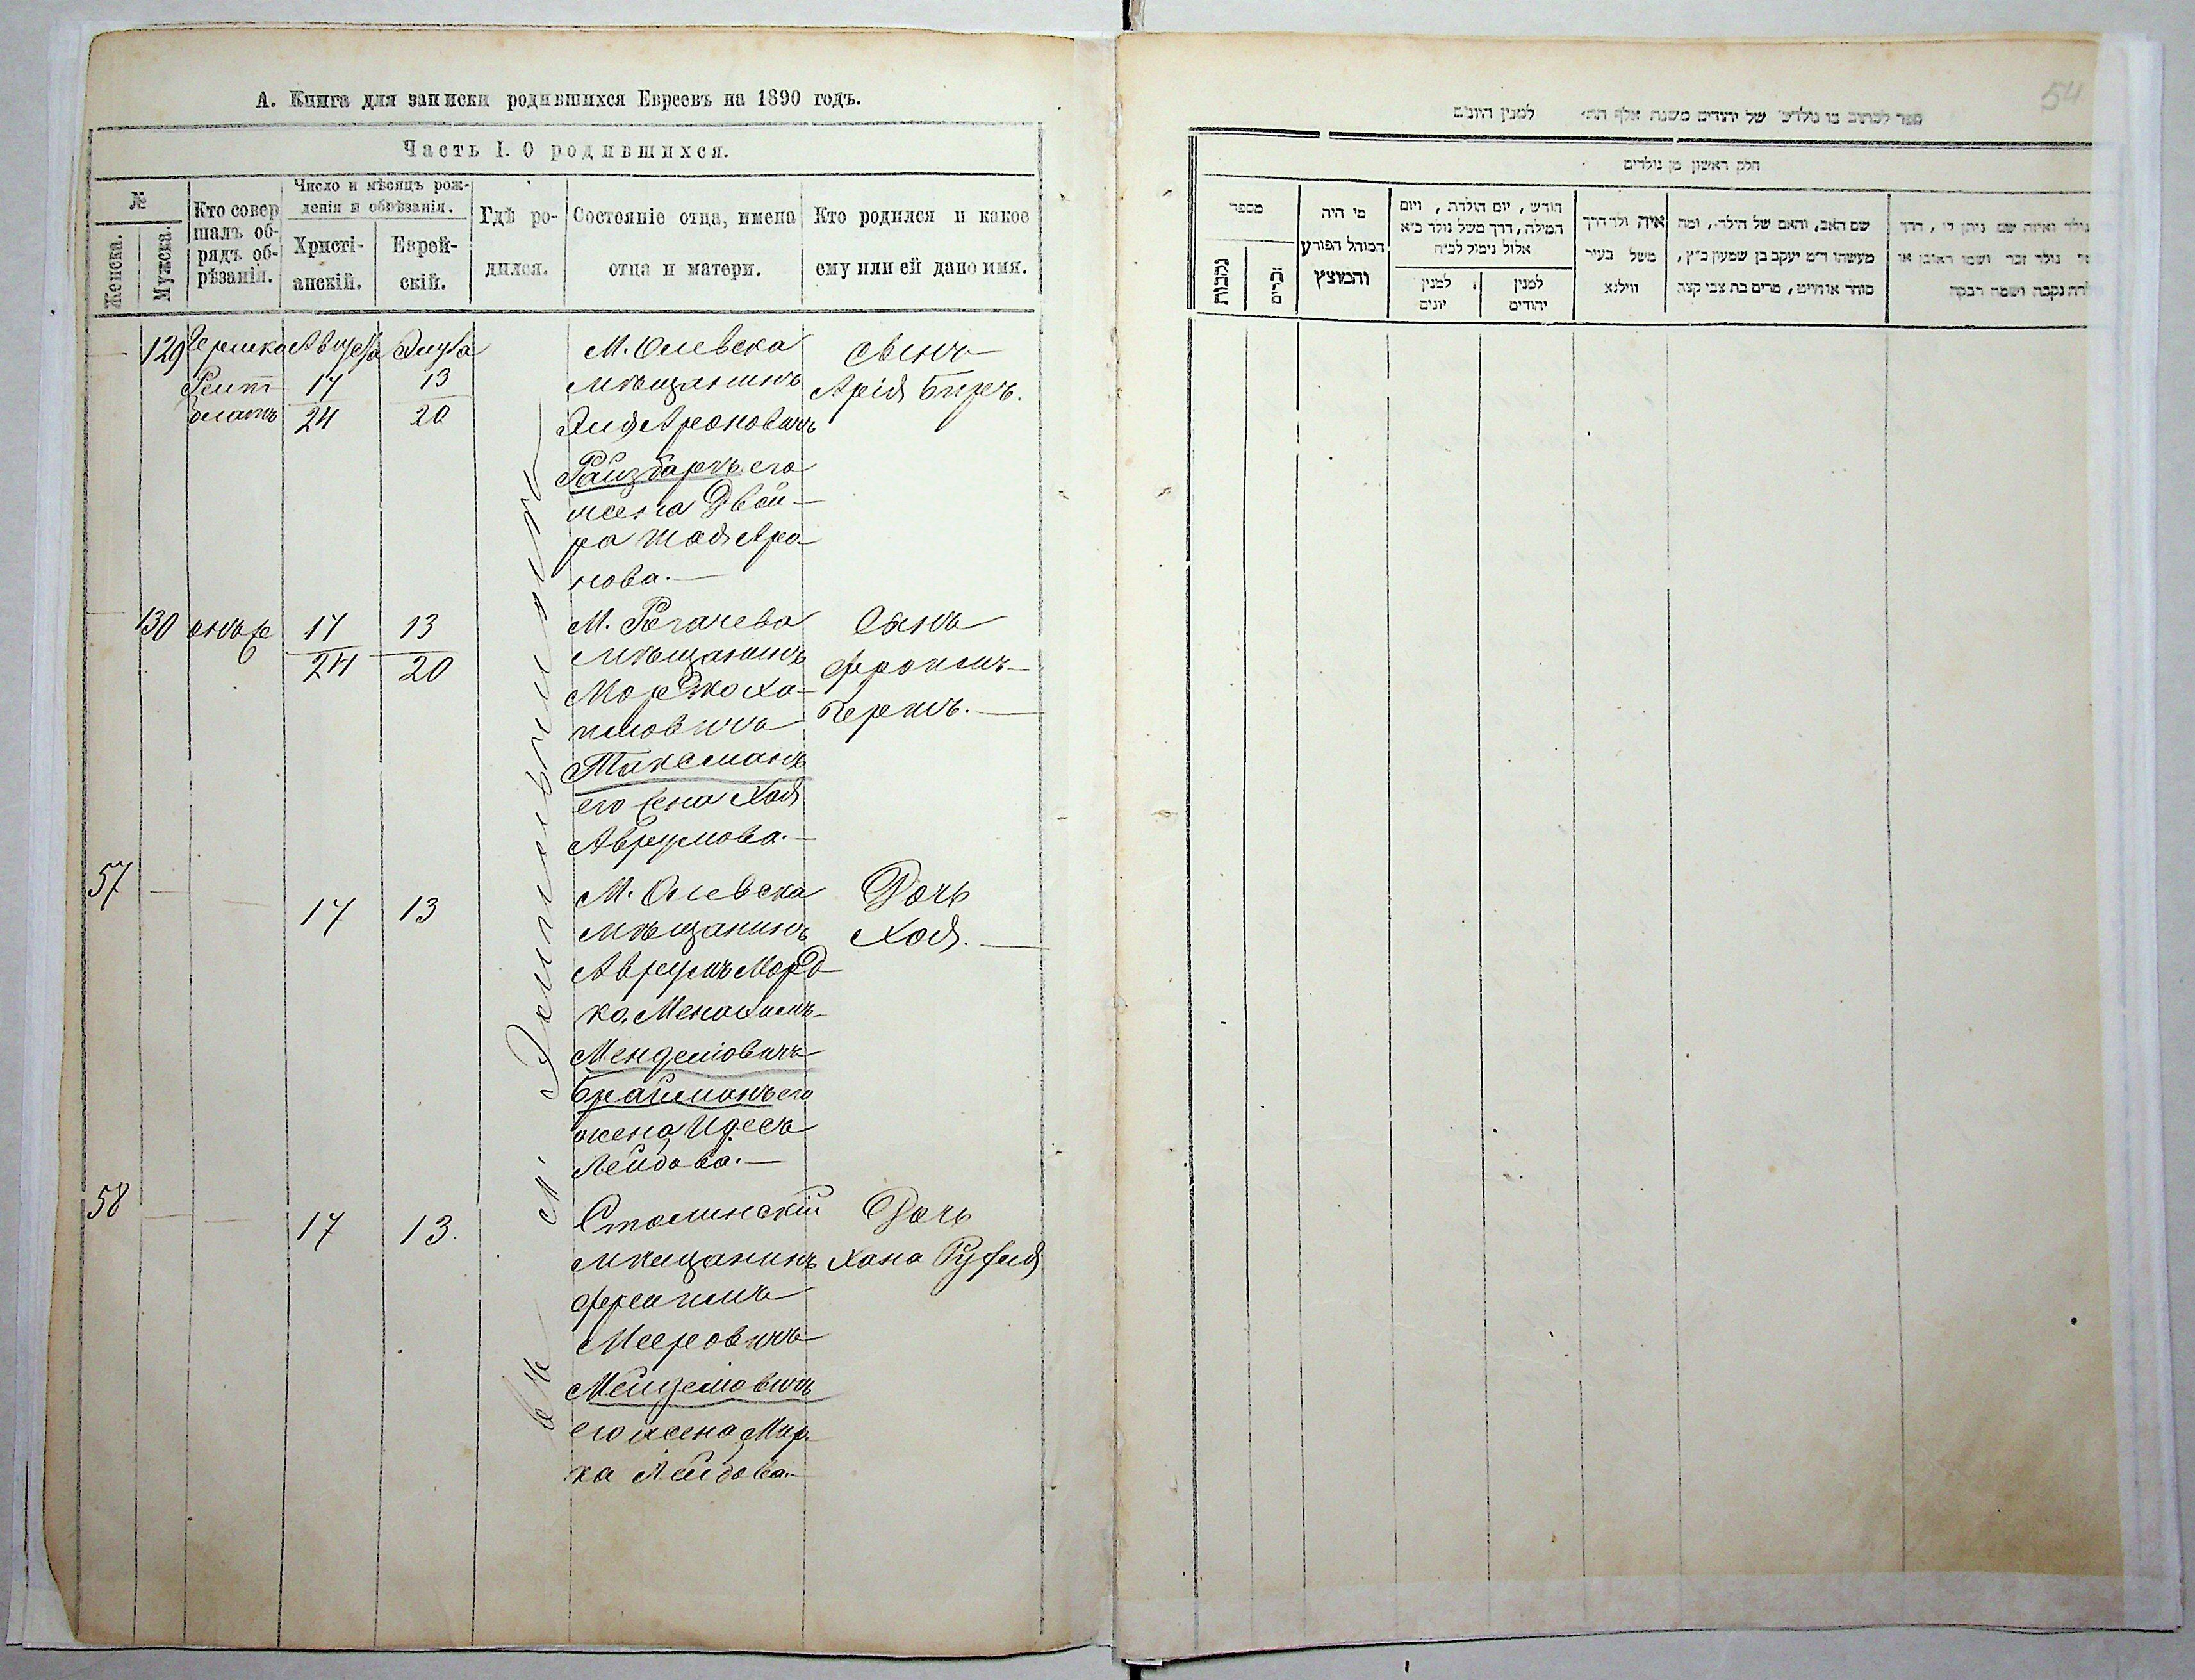 А. Книга для записки родившихся Евреевъ на 1890 годъ.
Часть I. О родившихся.
№
Женска.
Мужска.
Кто совер
шалъ об-
рядъ об-
рѣзанія.
Число и мѣсяцъ рож-
денія и обрѣзанія.
Христі-
анскій.
Еврей-
скій.
Гдѣ ро-
дился.
Состояніе отца, имена
отца и матери.
Кто родился и какое
ему или ей дано имя.
129 Августа
17 13
24 20
М. Олевска
мѣщанинъ
Эля Ароновичъ
его
жена Двой-
ра Хая Аро-
нова.—
Сынъ
Арія Беръ.
130 онъ же 17 13
24 20
М. Рогачева
мѣщанинъ
Мордко Ха-
имовичъ
Таксманъ
его жена Хая
Аврумова.—
Сынъ
Фроимъ
Гершъ.—
57 — — 17 13
М. Олевска
мѣщанинъ
Аврумъ Морд
ко Менахимъ
Менделіовичъ
Брайманъ его
жена Идесъ
Лейбова.—
Дочь
Хая.—
58 — — 17 13.
Столинскій
мѣщанинъ
Фроимъ
Мееровичъ
его жена Мир
ка Лейбова.—
Дочь
Хана
въ М.
54
ספר לכתוב בו נולדים של יהודים משנת אלף הת׳ למנין היונים
חלק ראשון מן נולדים
מספר
נקבות
זכרים
מי היה
המוהל הפורע
והמוצץ
חודש, יום הולדת, ויום
המילה, דרך משל נולד כ״א
אלול נימול לכ״ח
למנין
יונים
למנין
יהודים
איה ולד דרך
משל בעיר
ווילנא
שם האב, והאם של הילד, ומה
מעשהו ד״מ יעקב בן שמעון כ״ץ,
סוחר או חייט, מרים בת צבי קצה
נולד ואיזה שם ניתן לו, דרך
נולד זכר ושמו ראובן או
נקבה ושמה רבקה